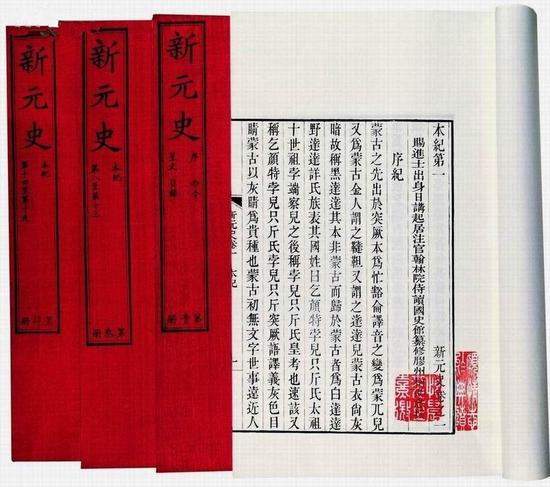 本紀第一
新元史卷之一
賜進士出身日講起居注官翰林院侍讀國史館纂修膠州
序紀
蒙古之先出於突厥本爲忙豁侖譯音之變爲蒙兀兒
又爲蒙古金人謂之韃靼又謂之達達兒蒙古衣尚灰
暗故稱黑達達其本非蒙古而歸於蒙古者爲白達達
野達達詳氏族表其國姓曰乞顏特孛兒只斤氏太祖
十世祖孛端察兒之後稱孛兒只斤氏皇考也速該又
稱乞顏特孛兒只斤氏孛兒只斤突厥語譯義灰色目
睛蒙古以灰睛爲貴種也蒙古初無文字世事遠近人
新元史卷一 本紀 一
新元史
序 命令
呈文 目錄
第壹册
新元史
本紀
第八至第十三
第叁册
新元史
本紀
第十四至第十九
第肆册